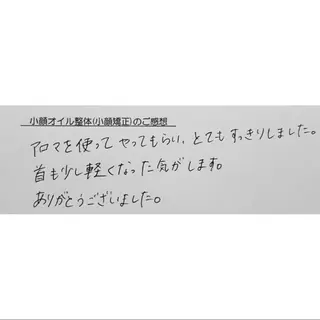 小顔オイル整体(小顔矯正)のご感想
アロマを使ってやってもらい、とてもすっきりしました。
首も少し軽くなった気がします。
ありがとうございました。